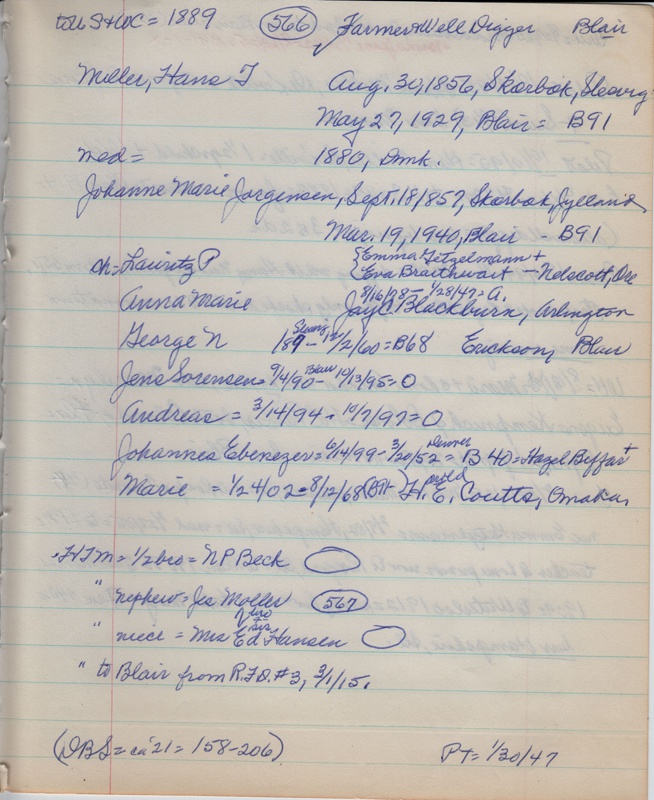 to U S & WC = 1889 566 Farmer & Well Digger Blair
Miller, Hans J Aug. 30, 1856, Skorbok,
May 27, 1929, Blair = B91
med = 1880, Dmk.
Johanne Marie Jorgensen, Sept. 18/1857, Skorbok, Jylland,
Mar. 19, 1940, Blair - B91
ch = Lauritz P { Emma Getzelmann +
Eva Braithwart - Nelscott, Ore
8/16/88 - 1/28/47 = A.
Anna Marie Jay C. Blackburn, Arlington
George N 189 - 12/2/60 = B68 Erickson, Blair
Jens Sorensen = 9/4/90 - Blair 10/13/95 = O
Andreas = 3/14/94 - 10/7/97 = O
Johannes Ebenezer = 6/14/99 - 3/20/52 Denver = B 40 = Hazel Beffart +
Marie = 1/24/02 = 8/12/68 (Blt) H. E. Coutts, Omaha,
HJM = 1/2 bro = N P Beck
" nephew = Jes Moller 567
" niece = Mrs Ed Hansen
" to Blair from R.F.D. #3, 3/1/15.
(DBS = ca '21 = 158-206) PT = 1/30/47